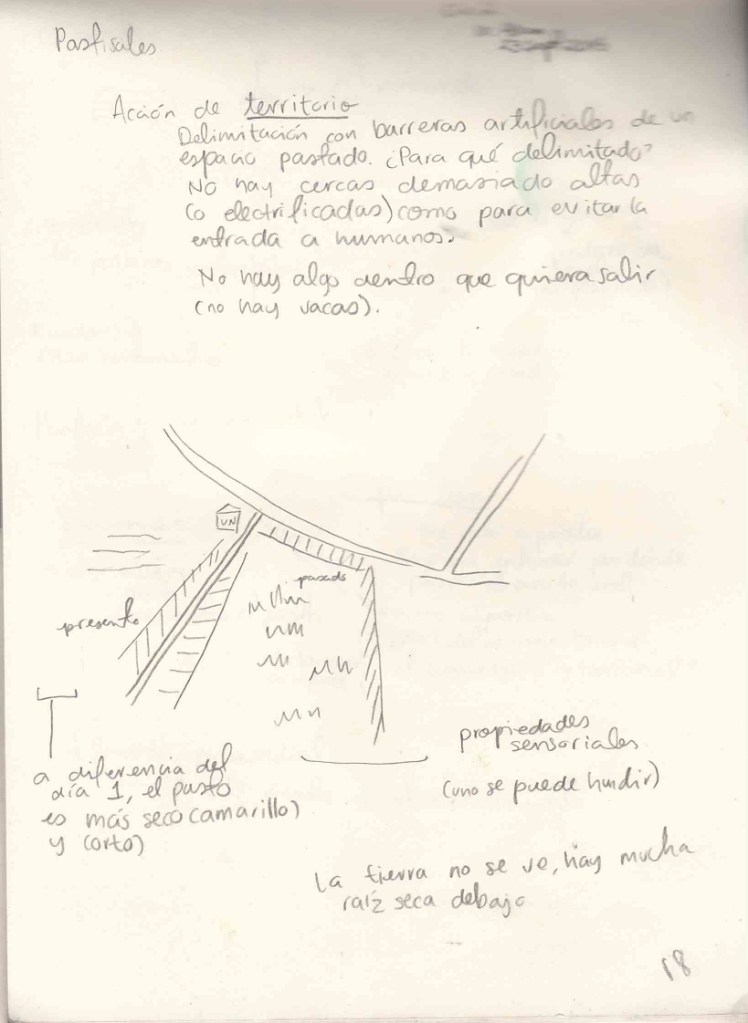 Pastisales
Acción de territorio
Delimitación con barreras artificiales de un
espacio pastado. ¿Para qué delimitado?
No hay cercas demasiado altas
(o electrificadas) como para evitar la
entrada a humanos.
No hay algo dentro que quiera salir
(no hay vacas).
UN
pasado
presente
propiedades
sensoriales
(uno se puede hundir)
a diferencia del
día 1, el pasto
es más seco (amarillo)
y corto)
La tierra no se ve, hay mucha
raíz seca debajo
18